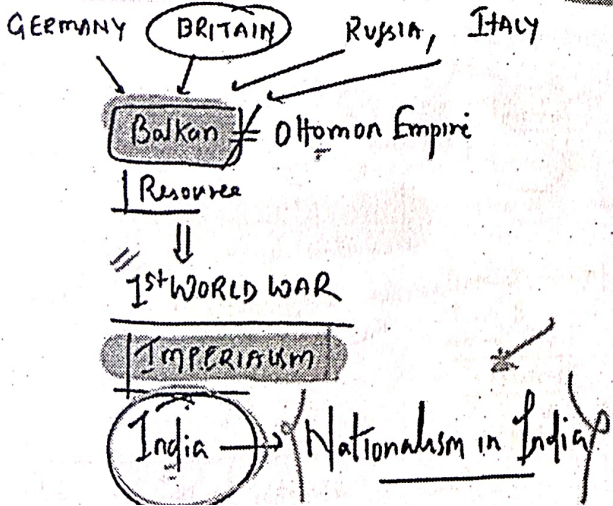 GERMANY BRITAIN Russia, ITALY
Balkan = Ottomon Empire
Resource
⇓
1st WORLD WAR
IMPERIALISM
India → Nationalism in India